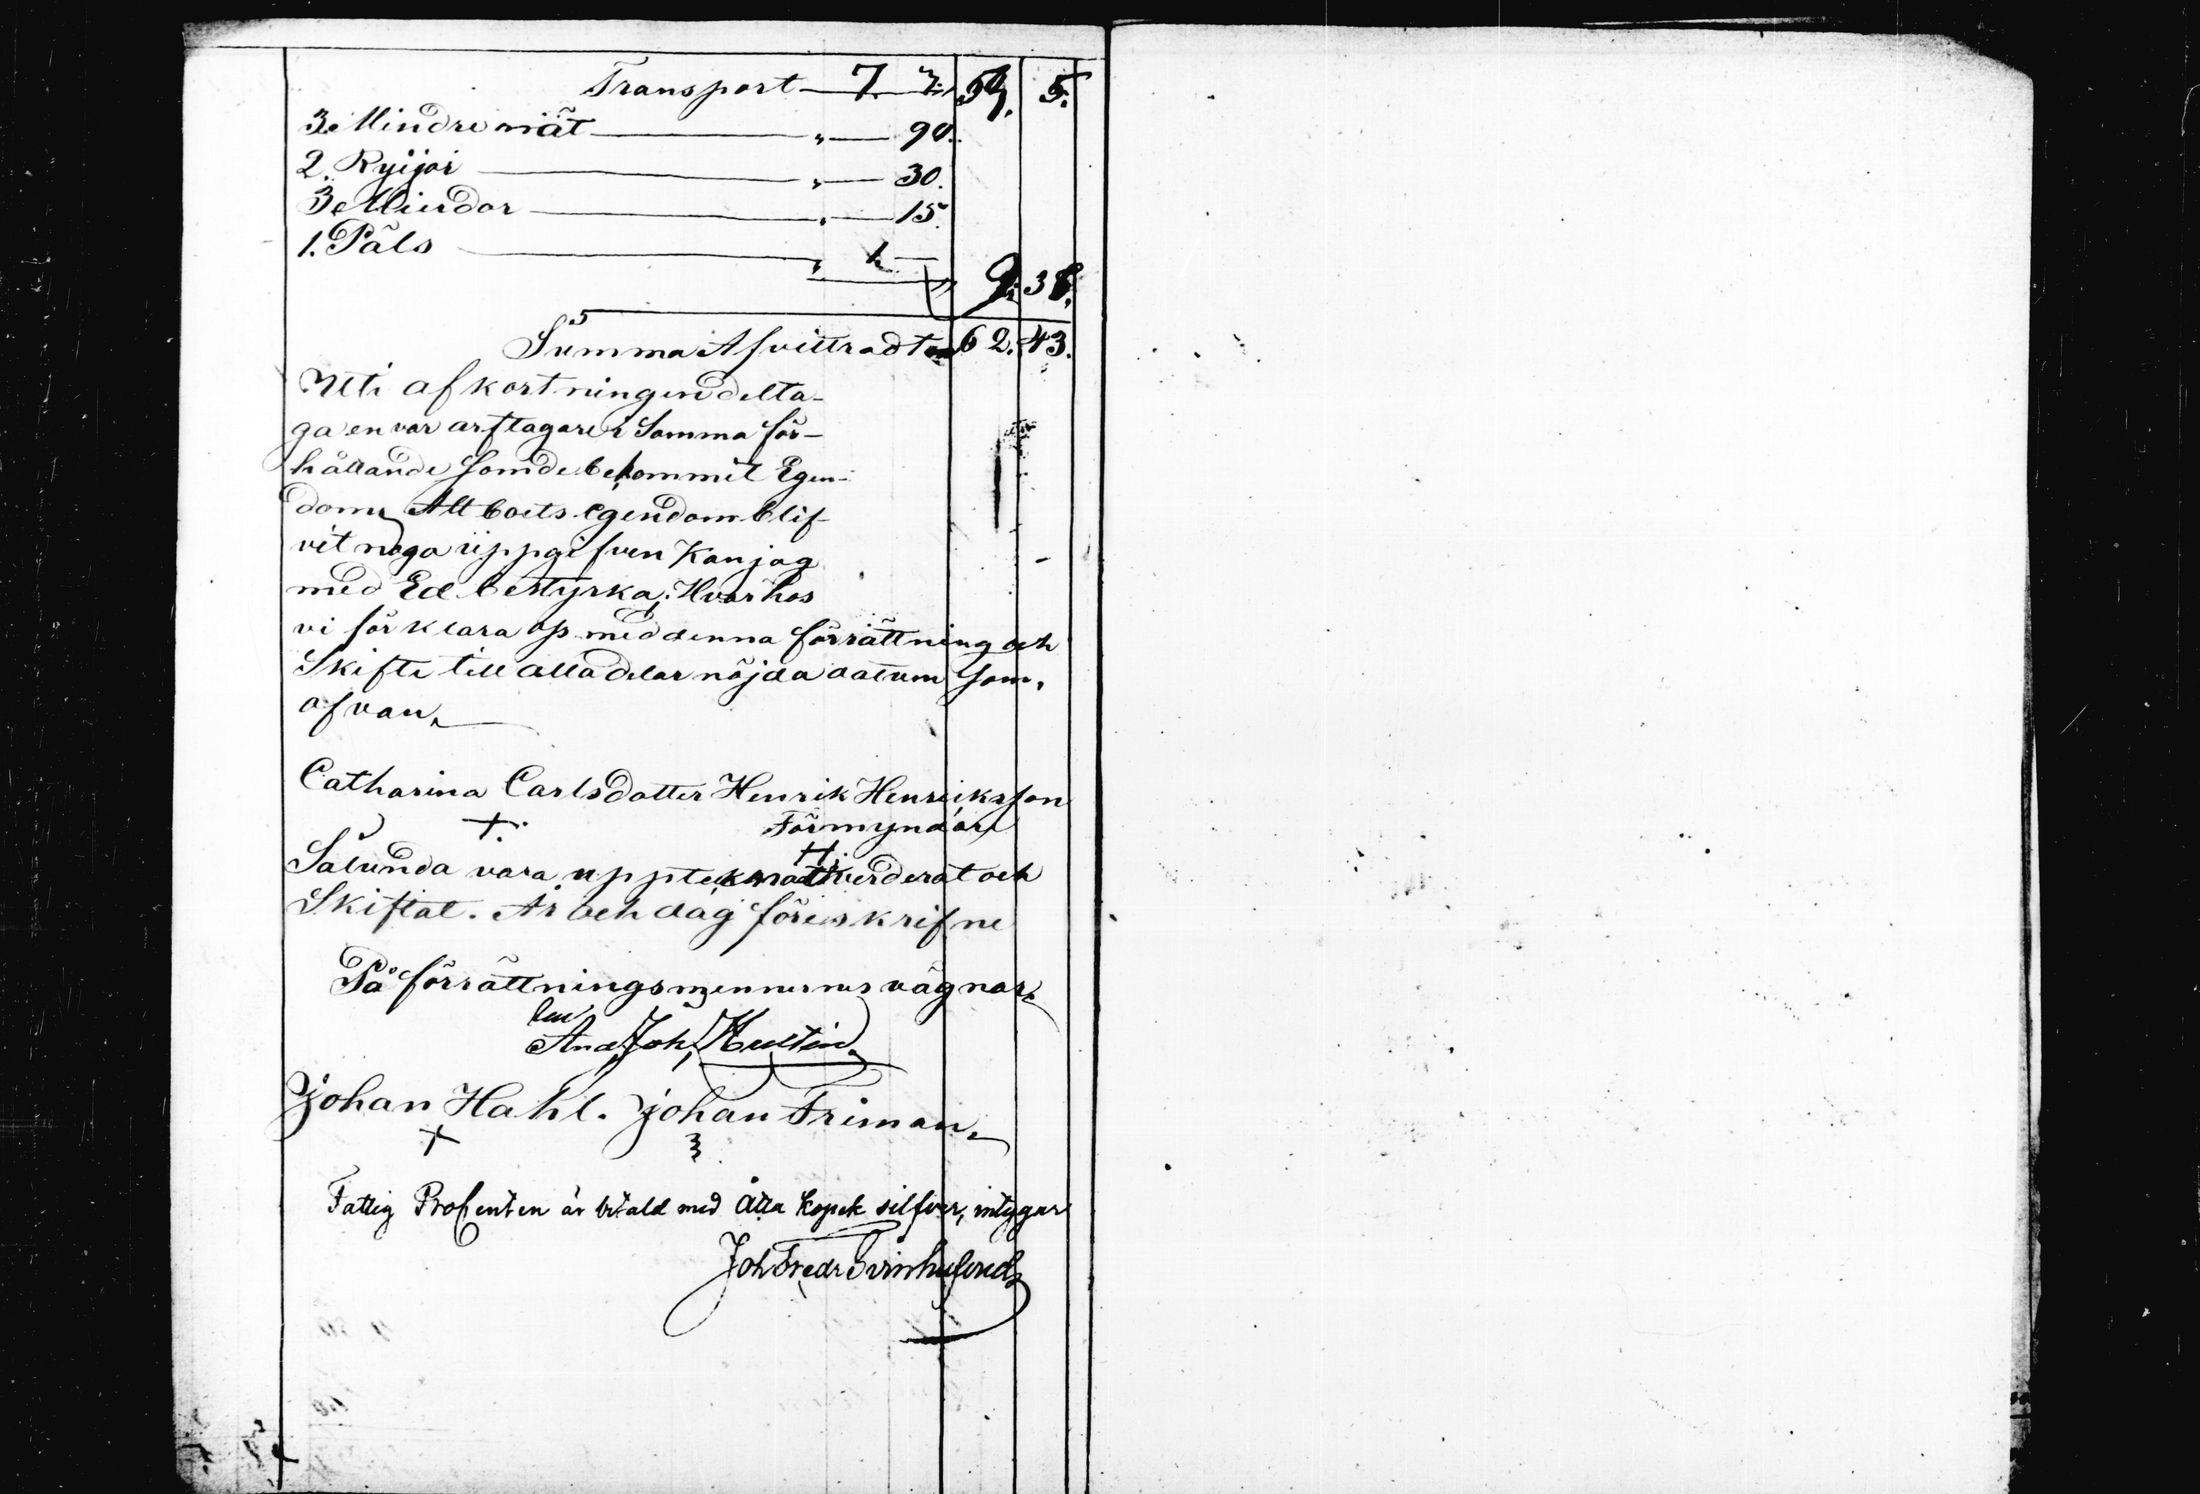 Transport 7 3 54. 5.
3. Mindre nät " 90.
2. Ryijor " 30.
3. Mierdor " 15.
1. Päls " 1 —
62. 43.
Summa Afvittradt
Uti afkortningen delta-
ga en var arftagare i Samma för-
hållande som de bekommit Egen-
dom, Att boets egendom blif-
vit noga uppgifven Kan jag
med Ed bestyrka, Hvarhos
vi förklara os med denna förrättning och
Skifte till alla delar nöjda datum som
ofvan.
Catharina Carlsdotter Henrik Henriksson
+ Förmyndare
Sålunda vara uppteknatt verderat och
Skiftat. År och dag föreskrifne
På förrättningsmennernes vägnar
And. Joh. Hultin.
Johan Hahl. Johan Friman.
Fattig Procenten är betald med Åtta kopek silfver, intygar
Joh Fredr Svinhufvud